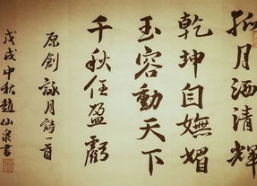 孤月洒清輝
乾坤自嫵媚
玉容動天下
千秋任盈虧
原創詠月詩一首
戊戌中秋趙仙泉書